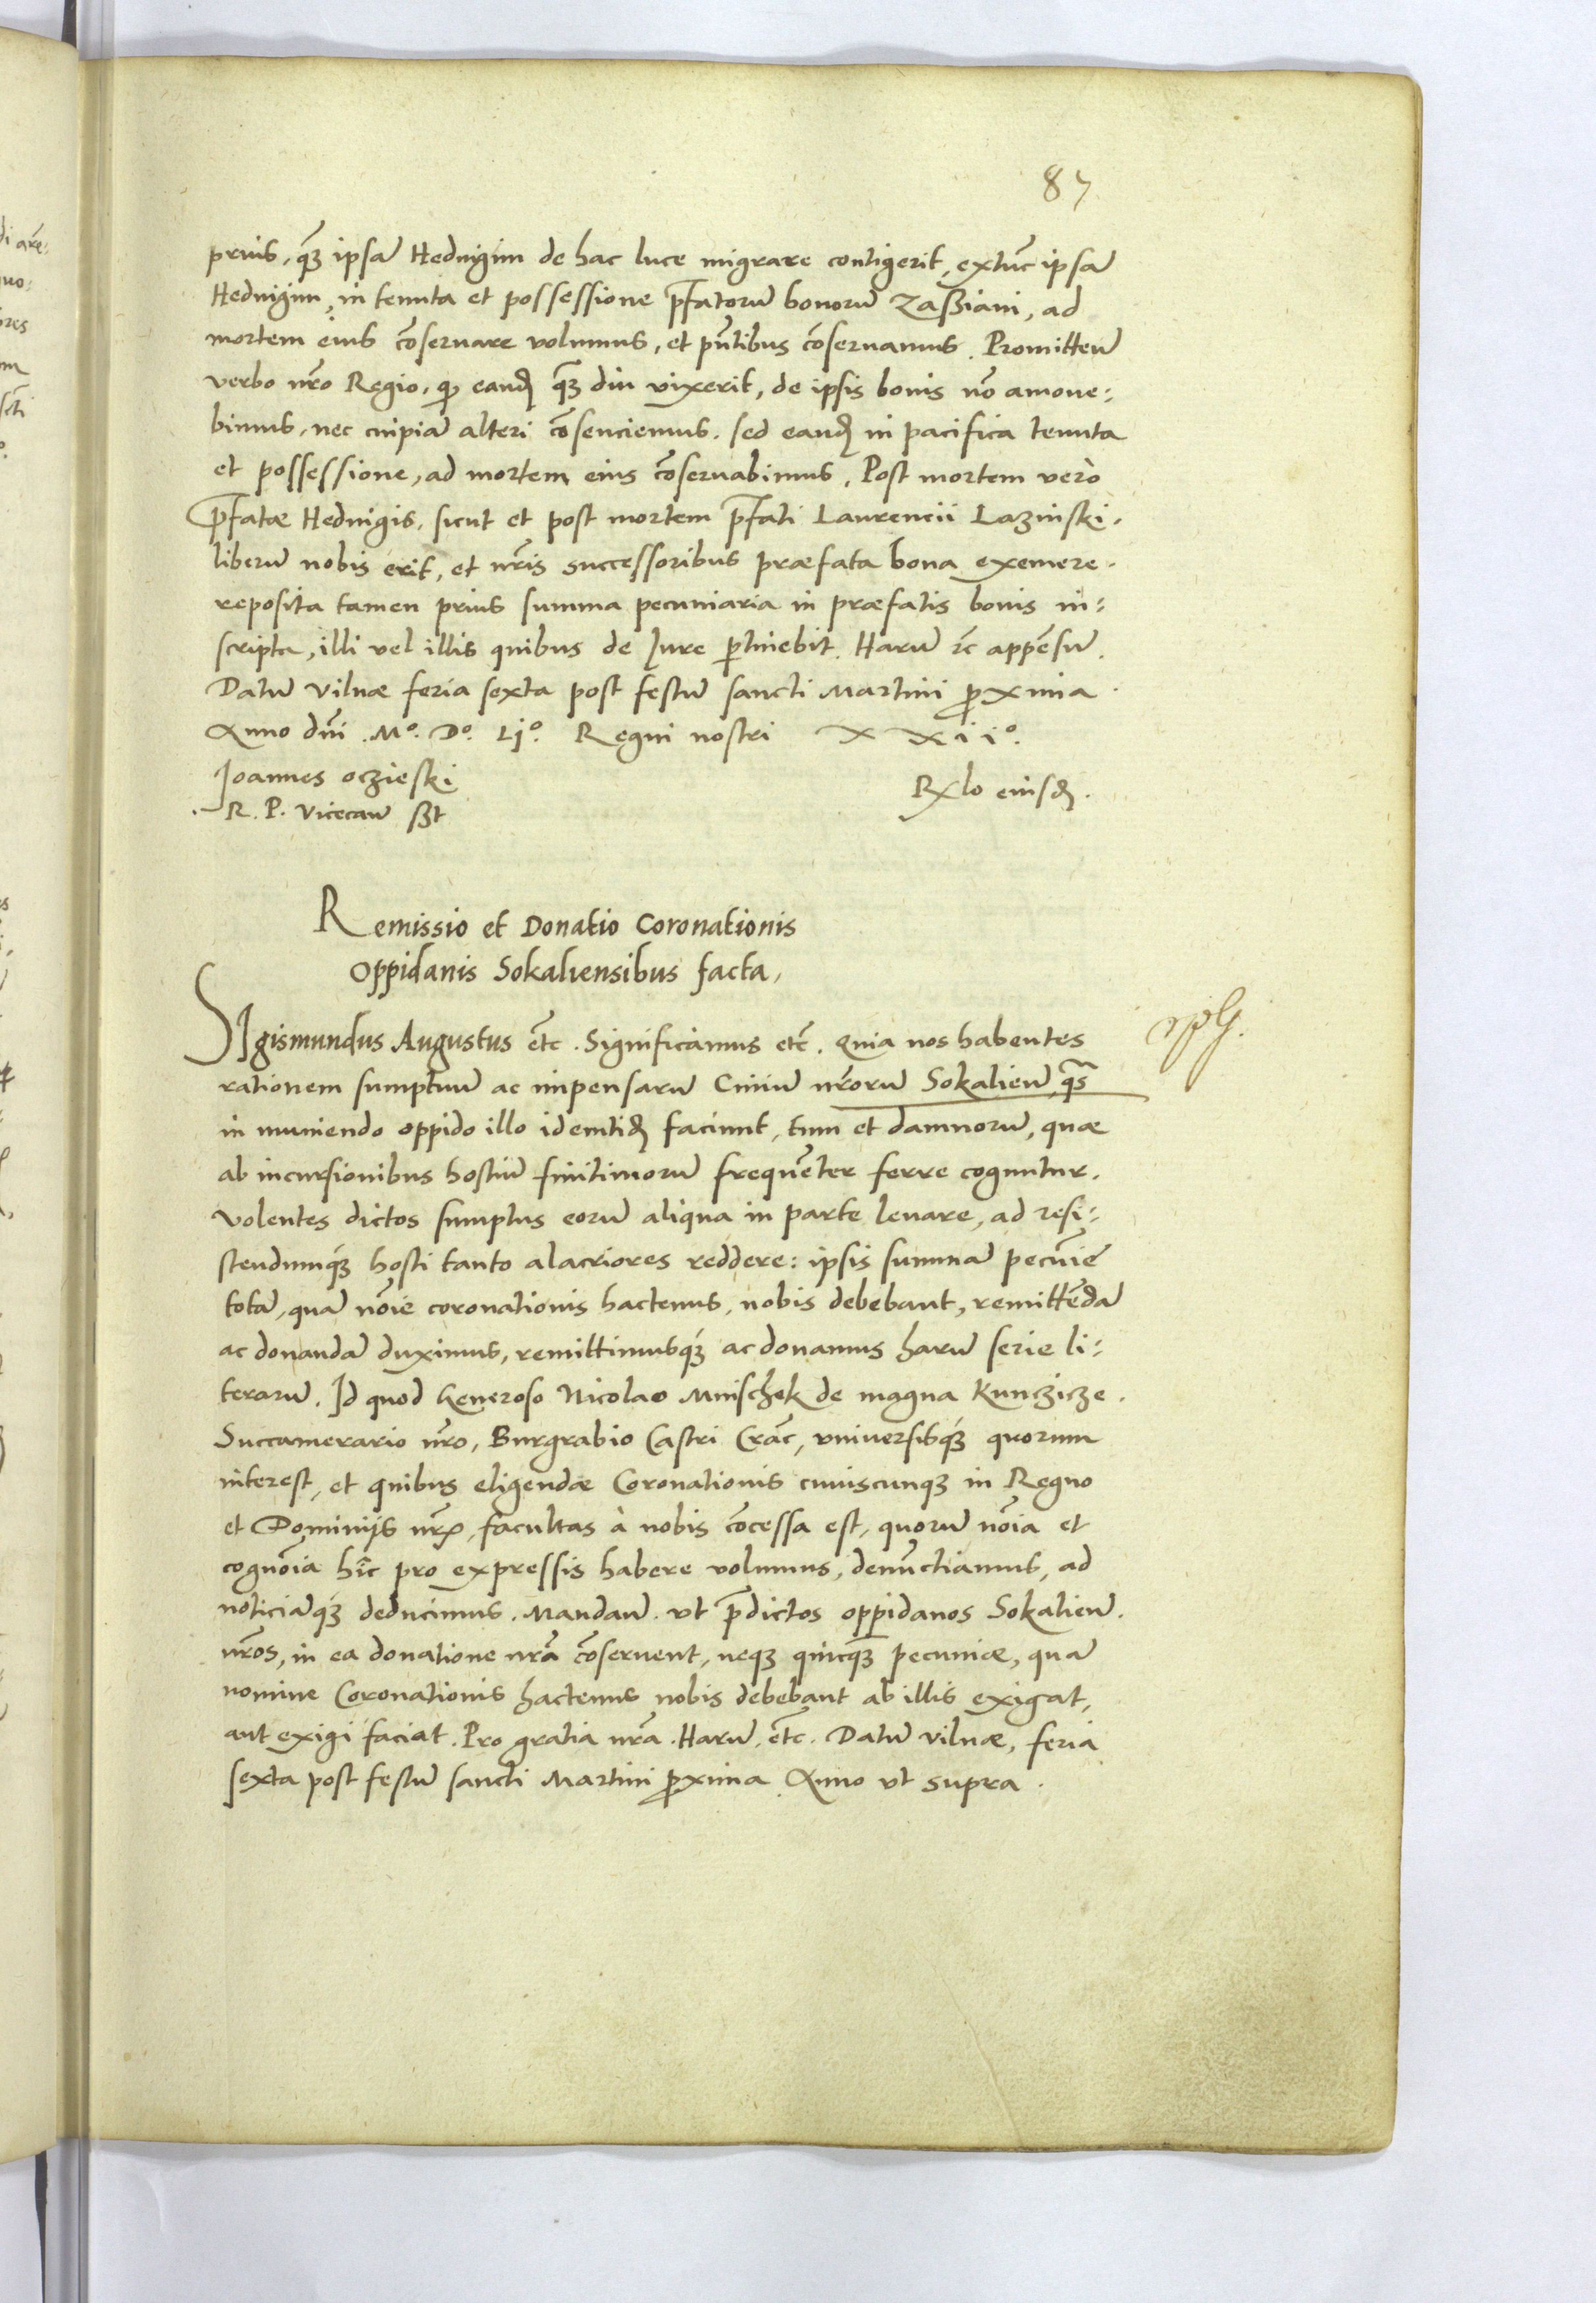 87
prius, quã ipsã Hednigim de hac luce migrare contigerit, extũc ipsã
Hednigim, in tenuta et possessione p̃fatorũ bonorũ Zassiani, ad
mortem eius cõseruare volumus, et pñtibus cõseruamus. Promitteñ
verbo nr̃o Regio, qp eandẽ quã diu vixerit, de ipsis bonis nõ amoue:
bimus, nec cuipiã alteri cõsenciemus. sed eandẽ in pacifica tenuta
et possessione, ad mortem eius cõseruabimus. Post mortem verò
p̃fatæ Hednigis, sicut et post mortem p̃fati Laurencii Lazinski.
liberũ nobis erit, et nr̃is successoribus præfata bona exemere.
reposita tamen prius summa pecuniaria in præfatis bonis in:
scripta, illi vel illis quibus de Jure ptinebit. Harũ etc̃ appẽsũ.
Datũ Vilnæ feria sexta post festũ sancti Martini pxima.
Anno dñi .Mº. Dº. Ljº. Regni nostri XXiiº.
Joannes oczieski
R. P. Vicecañ sßt
Rlo eiusdẽ.
Remissio et Donatio Coronationis
Oppidanis Sokaliensibus facta,
SIgismundus Augustus etc̃. Significamus etc̃. Quia nos habentes
rationem sumptuũ ac impensarũ Ciuiũ nr̃orũ Sokalieñ, qs̃
in muniendo oppido illo idemtidẽ faciunt, tum et damnorũ, quæ
ab incursionibus hostiũ finitimorũ frequẽter ferre coguntur.
Volentes dictos sumptus eorũ aliqua in parte leuare, ad resi:
stendumq́ꝫ hosti tanto alacriores reddere: ipsis summã pecuñie
totã, quã nõie coronationis hactenus, nobis debebant, remittẽdã
ac donandã duximus, remittimusq́ꝫ ac donamus harũ serie li:
terarũ. Id quod Generoso Nicolao Mnischek de magna Kunczicze.
Succamerario nr̃o, Burgrabio Castri Crac̃, vniuersisq́ꝫ quorum
interest, et quibus eligendæ Coronationis cuiuscunqꝫ in Regno
et Dominijs nr̃is, facultas à nobis cõcessa est, quorũ nõia et
cognõia hĩc pro expressis habere volumus, denũctiamus, ad
noticiãq́ꝫ deducimus. Mandañ. vt p̃dictos oppidanos Sokalieñ.
nr̃os, in ea donatione nr̃a cõseruent, neqꝫ quicq̃ꝫ pecuniæ, quã
nomine Coronationis hactenus nobis debebant ab illis exigat,
aut exigi faciat. Pro gratia nr̃a. Harũ. etc̃. Datũ Vilnæ, feria
sexta post festũ sancti Martini pxima Anno vt supra.